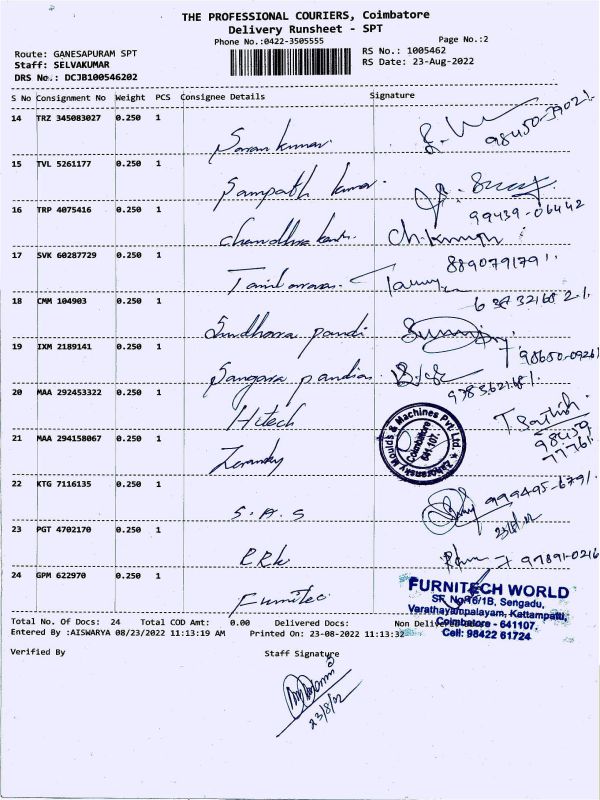 THE PROFESSIONAL COURIERS, Coimbatore
Delivery Runsheet - SPT
Phone No.:0422-3505555
Page No.:2
Route: GANESAPURAM SPT
RS No.: 1005462
Staff: SELVAKUMAR
RS Date: 23-Aug-2022
DRS No.: DCJB100546202
S No Consignment No Weight PCS Consignee Details Signature
14 TRZ 345083027 0.250 1
Saran kumar
15 TVL 5261177 0.250 1
Sampath kumar
16 TRP 4075416 0.250 1
99439-06442
17 SVK 60287729 0.250 1
18 CMM 104903 0.250 1
19 IXM 2189141 0.250 1
20 MAA 292453322 0.250 1
Hitech
21 MAA 294158067 0.250 1
Zahoransky Moulds & Machines Pvt. Ltd.
Coimbatore
641 107.
22 KTG 7116135 0.250 1
S.A.S
23/8/22
23 PGT 4702170 0.250 1
24 GPM 622970 0.250 1
Furnitec
FURNITECH WORLD
SF. No.16/1B, Sengadu,
Varathayampalayam, Kattampatti,
Coimbatore - 641107.
Cell: 98422 61724
Total No. Of Docs: 24 Total COD Amt: 0.00 Delivered Docs: Non Delivered
Entered By :AISWARYA 08/23/2022 11:13:19 AM Printed On: 23-08-2022 11:13:32
Verified By Staff Signature
23/8/22